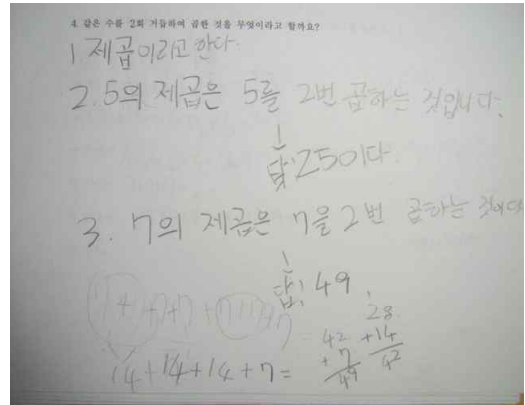 4. 같은 수를 2회 거듭하여 곱한 것을 무엇이라고 할까요?
1 제곱이라고 한다.
2. 5의 제곱은 5를 2번 곱하는 것입니다.
답: 25이다.
3. 7의 제곱은 7을 2번 곱하는 것이다
답: 49
14+14+14+7=
42
+7
49
28
+14
42